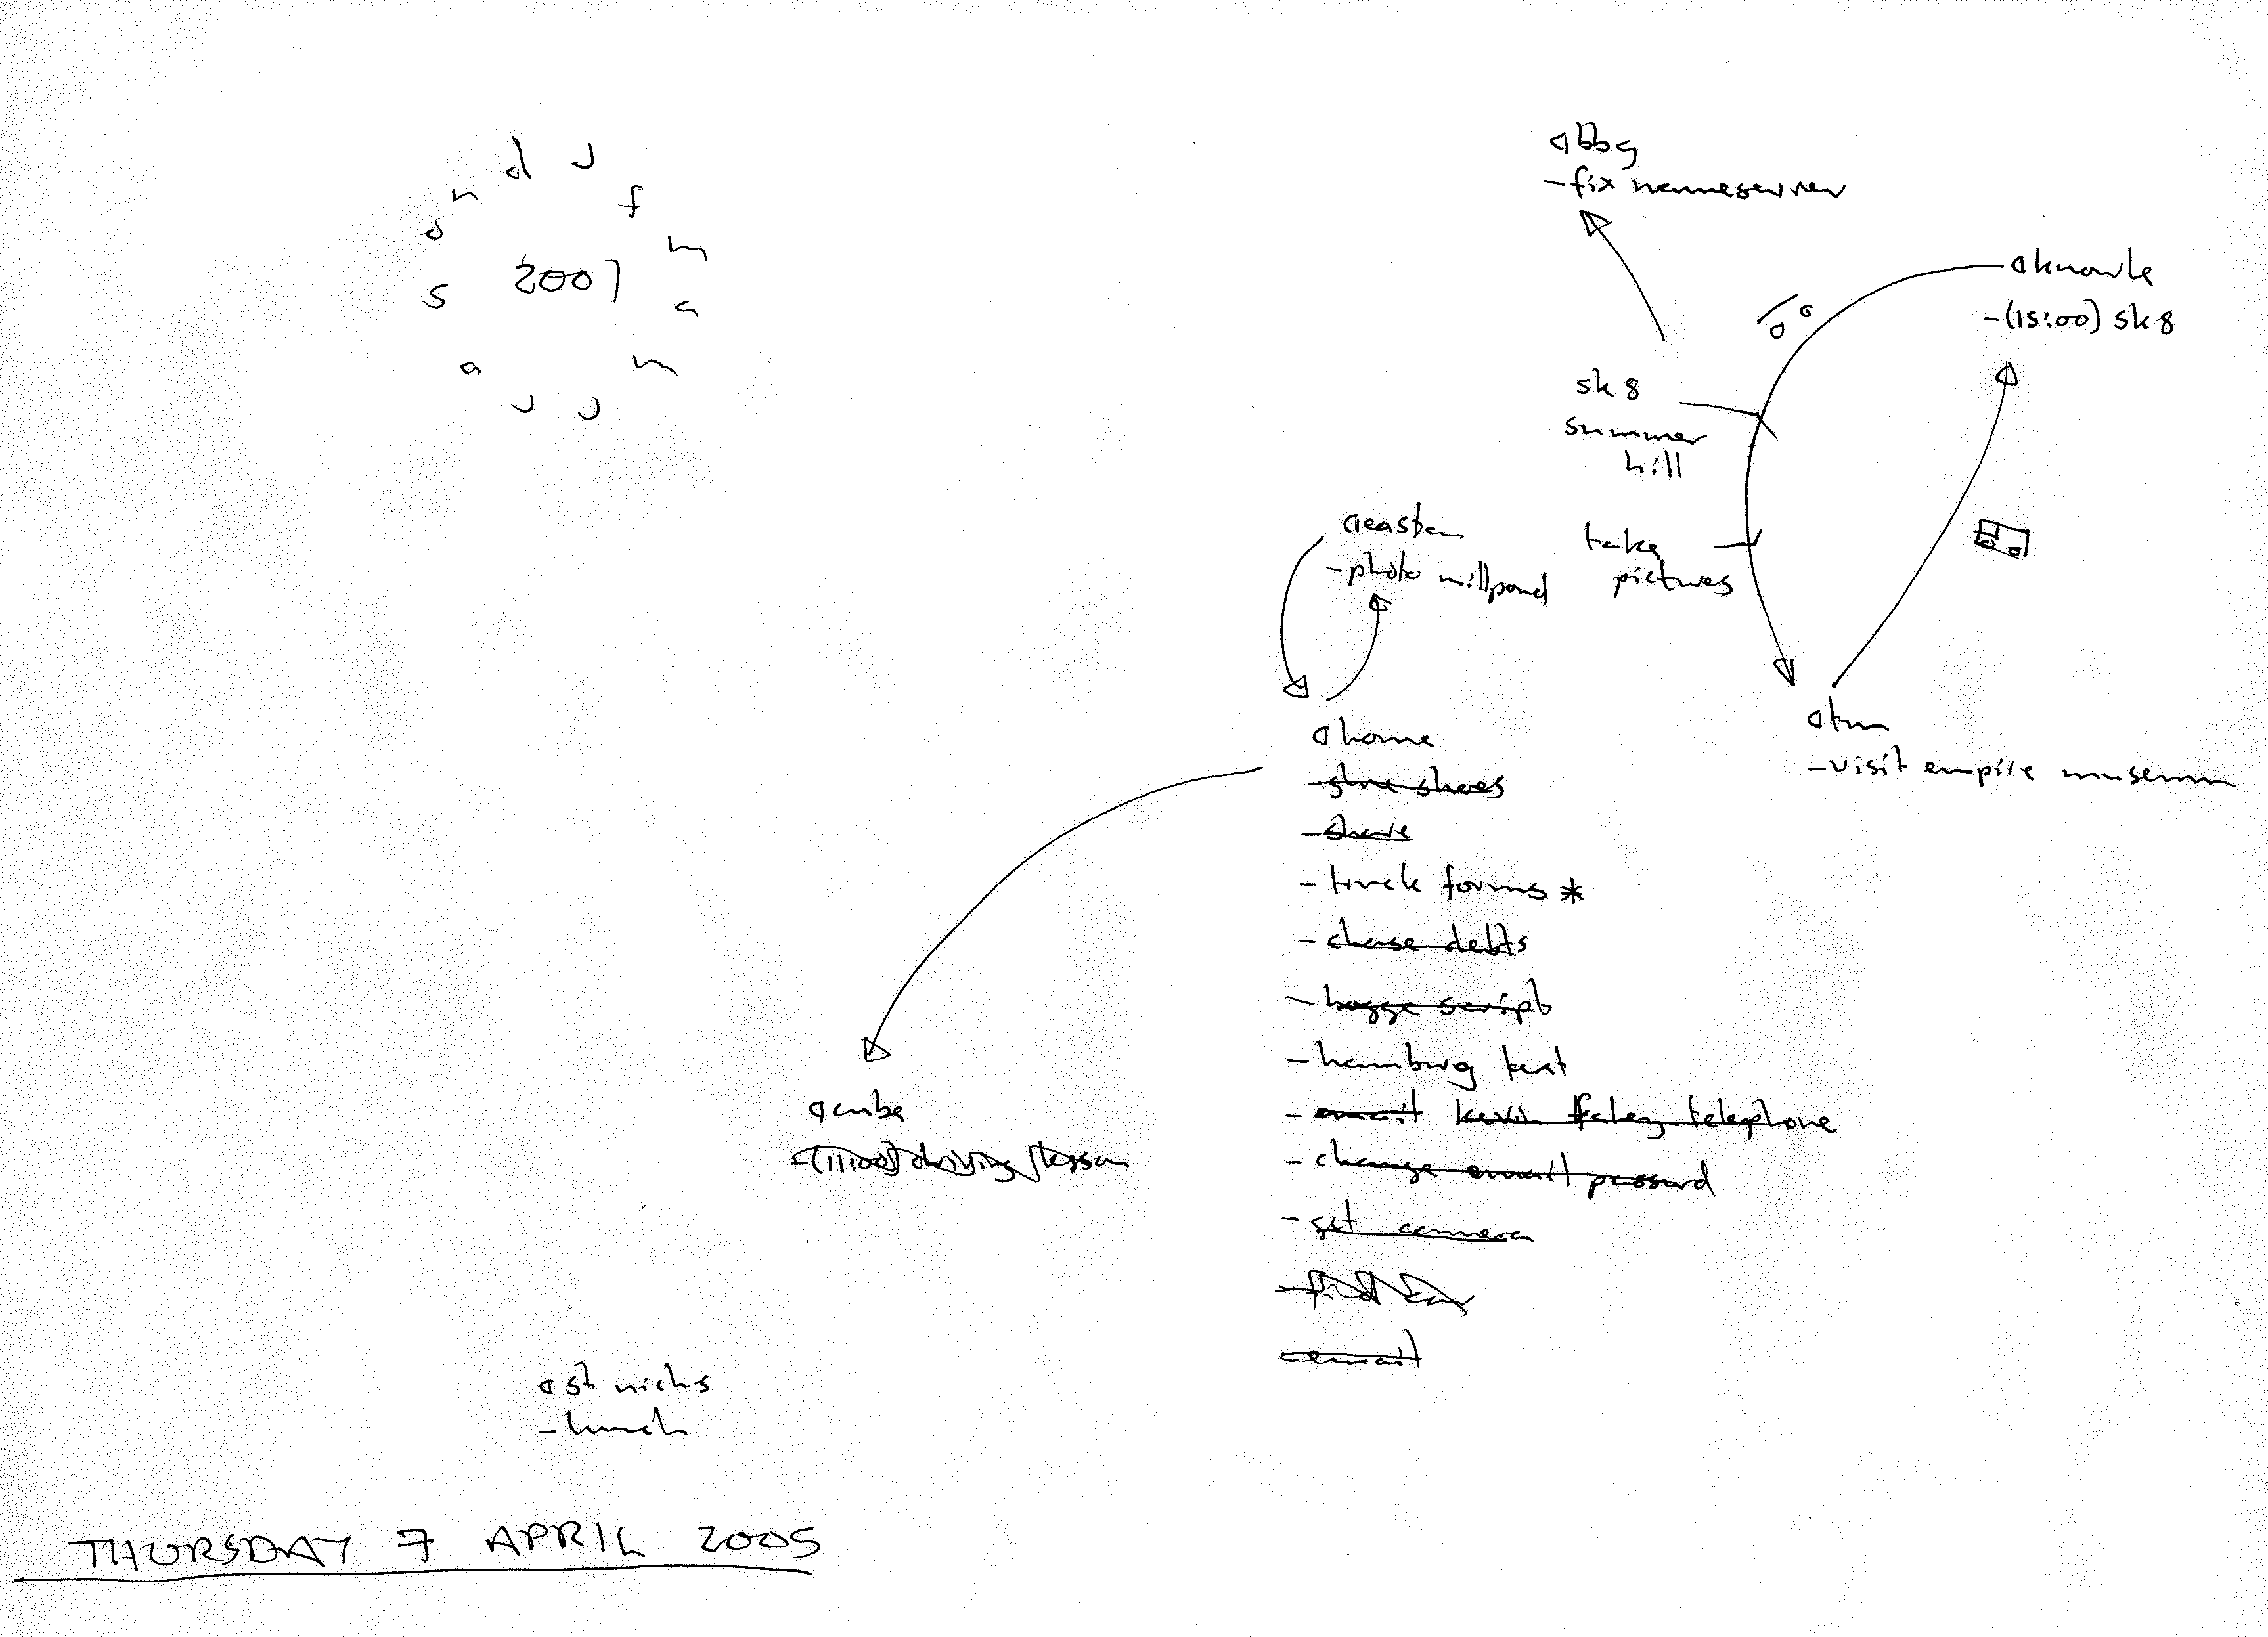 d J
n f
o m
s 2007 a
a m
J J
@bbg
-fix nameserver
@knowle
-(15:00) sk8
sk8
summer
hill
take
pictures
@easton
-photo millpond
@tm
-visit empire museum
@home
- shoes
-shave
- truck forms *
- chase debts
- script
- hamburg text
- email kevin telephone
- change email passwd
- get camera
-email
@cube
-(11:00) driving lesson
@st nicks
-lunch
THURSDAY 7 APRIL 2005